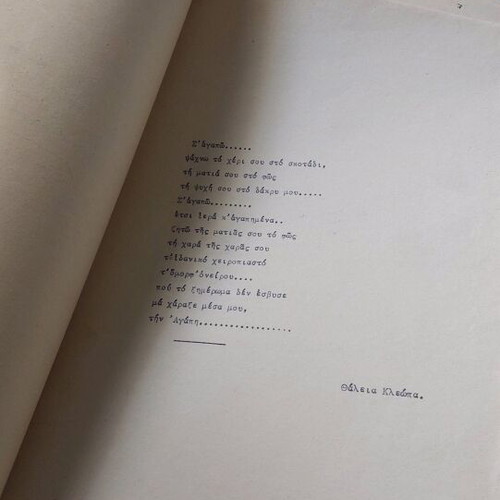 Σ'ἀγαπῶ......
ψάχνω τό χέρι σου στό σκοτάδι,
τή ματιά σου στό φῶς
τή ψυχή σου στό δάκρυ μου.....
Σ'ἀγαπῶ.........
ἔτσι ἱερά κ'ἀγαπημένα..
ζητῶ τῆς ματιᾶς σου τό φῶς
τή χαρά τῆς χαρᾶς σου
τ'ἰδανικό χειροπιαστό
τ'ὄμορφ'ὀνείρου....
πού τό ξημέρωμα δέν ἔσβυσε
μά χάραξε μέσα μου,
τήν Ἀγάπη..................
Θάλεια Κλεώπα.